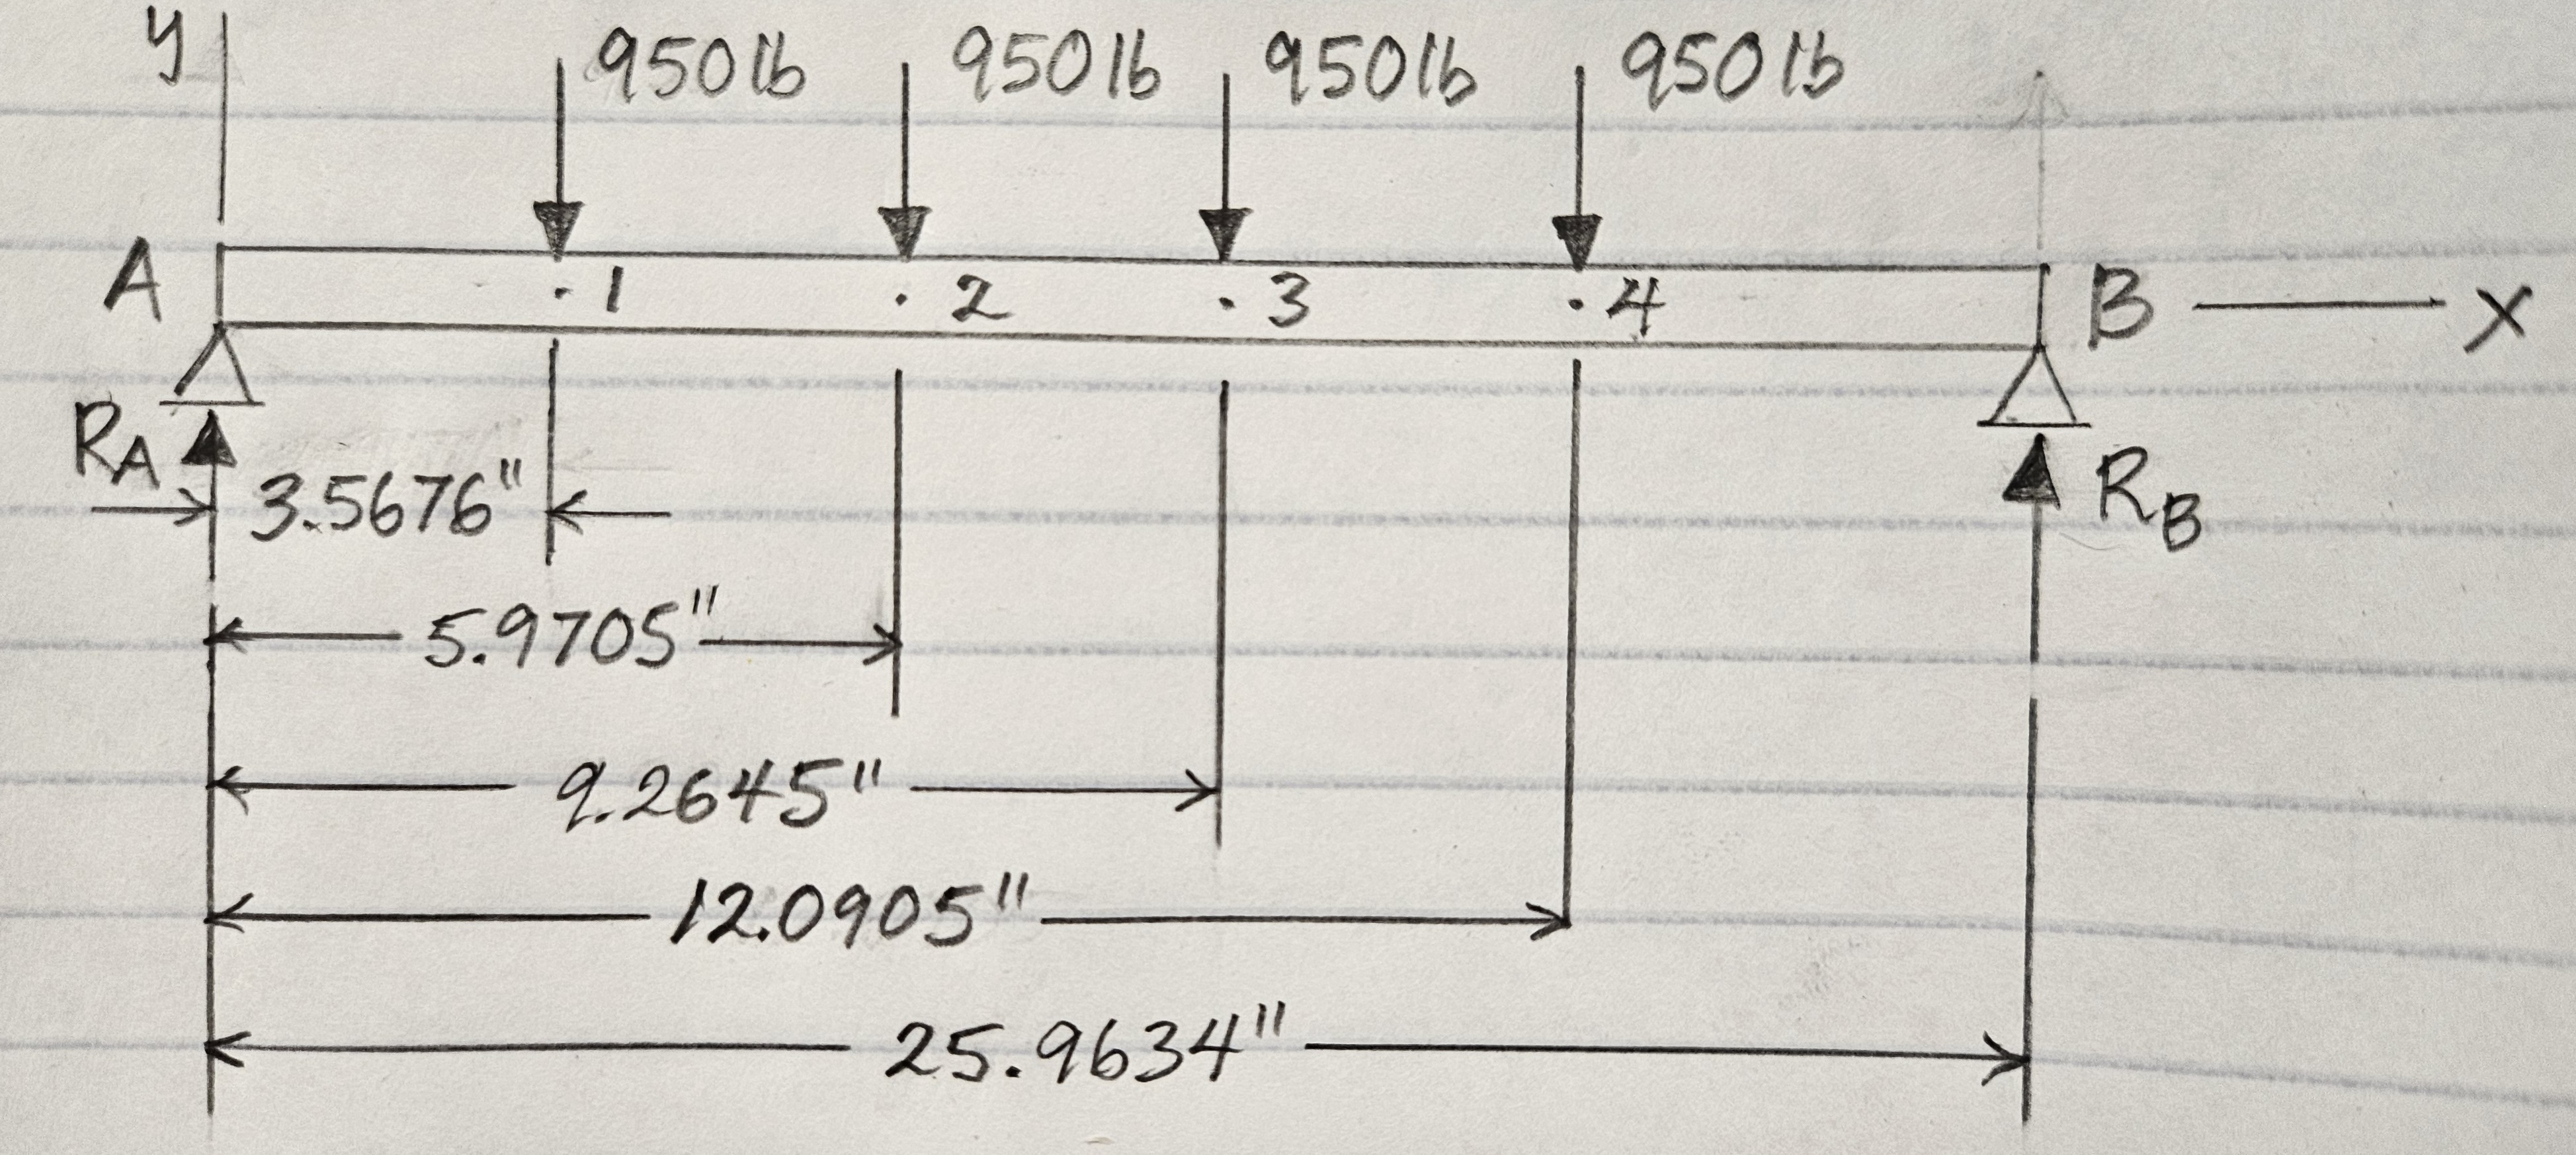 y
950 lb 950 lb 950 lb 950 lb
A .1 .2 .3 .4 B X
RA RB
3.5676"
5.9705"
9.2645"
12.0905"
25.9634"